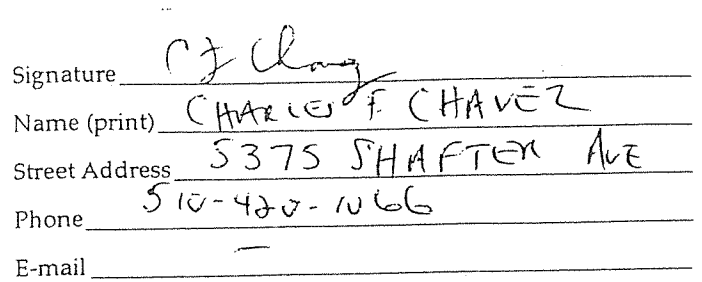 Signature CF Chavez
Name (print) CHARLES F. CHAVEZ
Street Address 5375 SHAFTER AVE
Phone 510-420-1066
E-mail —